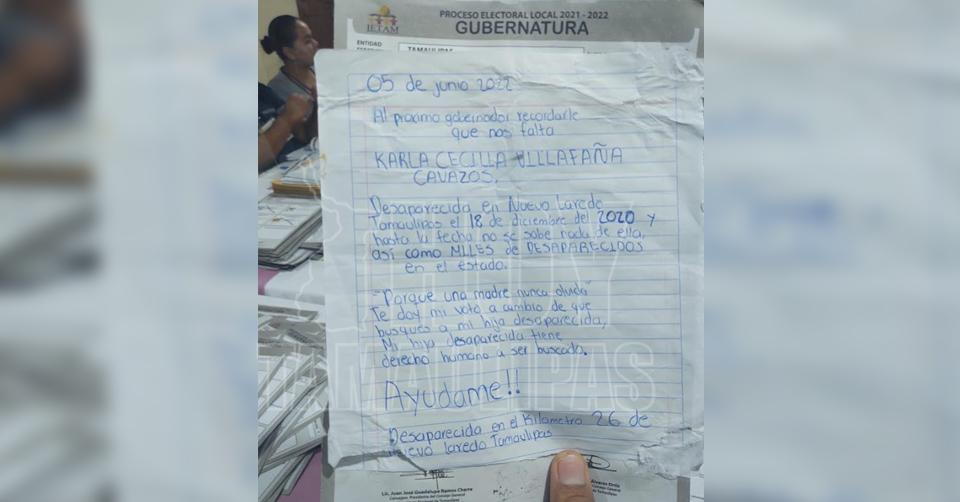 PROCESO ELECTORAL LOCAL 2021 - 2022
IETAM
GUBERNATURA
ENTIDAD
TAMAULIPAS
05 de junio 2022
Al proximo gobernador recordarle
que nos falta
KARLA CECILIA VILLAFAÑA
CAVAZOS.
Desaparecida en Nuevo Laredo
Tamaulipas el 18 de diciembre del 2020 y
hasta la fecha no se sabe nada de ella,
así como MILES de DESAPARECIDOS
en el estado.
"Porque una madre nunca olvida"
Te doy mi voto a cambio de que
busques a mi hija desaparecida,
Mi hija desaparecida tiene
derecho humano a ser buscada.
Ayudame!!
Desaparecida en el Kilometro 26 de
Nuevo Laredo Tamaulipas
TAMAULIPAS
Lic. Juan José Guadalupe Ramos Charre
Consejero Presidente del Consejo General